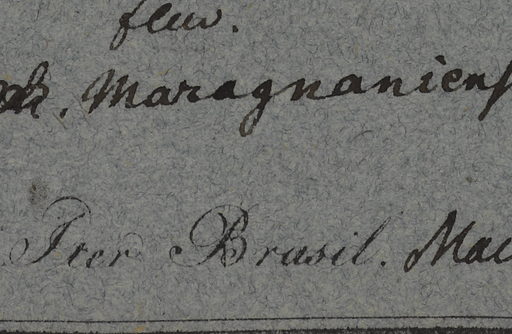 fluv.
Maragnaniens
Iter Brasil. Mac